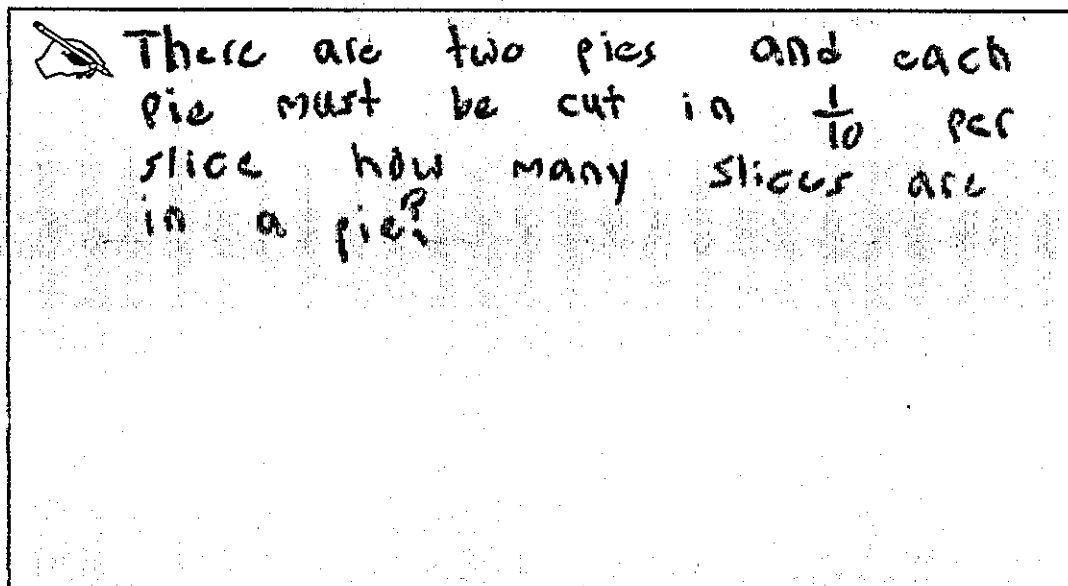 There are two pies and each
pie must be cut in 1/10 per
slice how many slices are
in a pie?